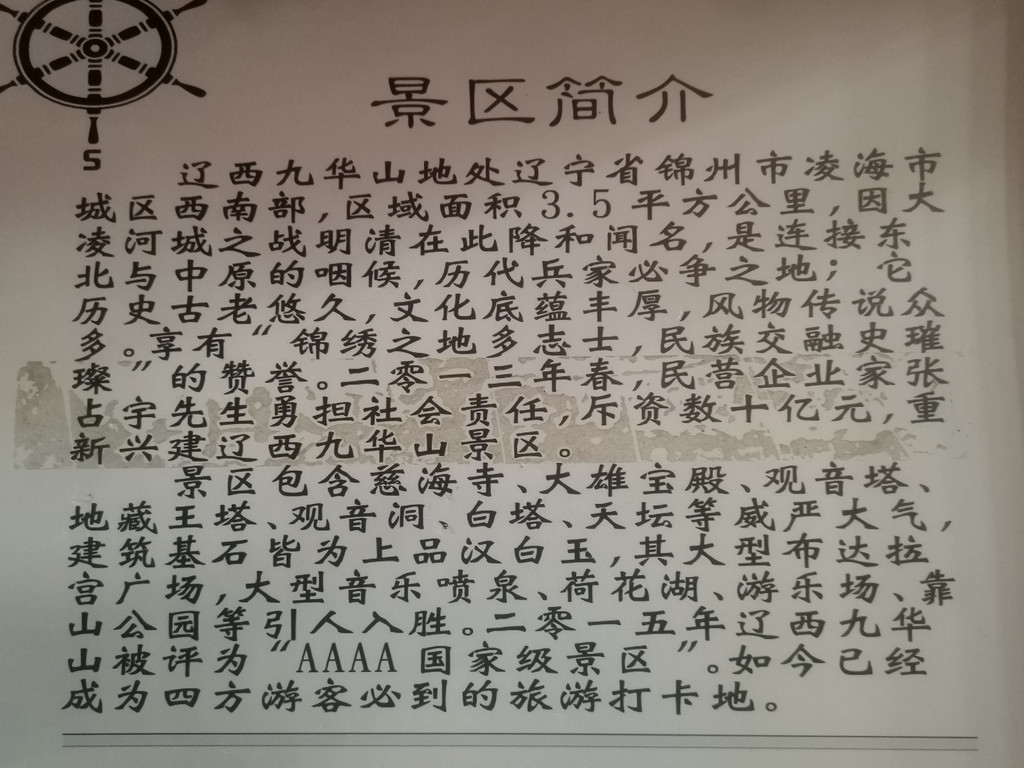 S
景区简介
辽西九华山地处辽宁省锦州市凌海市
城区西南部,区域面积3.5平方公里,因大
凌河城之战明清在此降和闻名,是连接东
北与中原的咽候,历代兵家必争之地；它
历史古老悠久,文化底蕴丰厚,风物传说众
多。享有“锦绣之地多志士,民族交融史璀
璨”的赞誉。二零一三年春,民营企业家张
占宇先生勇担社会责任,斥资数十亿元,重
新兴建辽西九华山景区。
景区包含慈海寺、大雄宝殿、观音塔、
地藏王塔、观音洞、白塔、天坛等威严大气,
建筑基石皆为上品汉白玉,其大型布达拉
宫广场,大型音乐喷泉、荷花湖、游乐场、靠
山公园等引人入胜。二零一五年辽西九华
山被评为“AAAA国家级景区”。如今已经
成为四方游客必到的旅游打卡地。